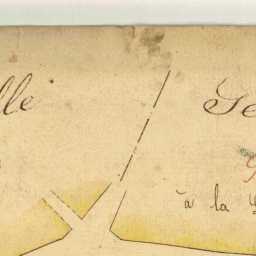 lle
Se
à la